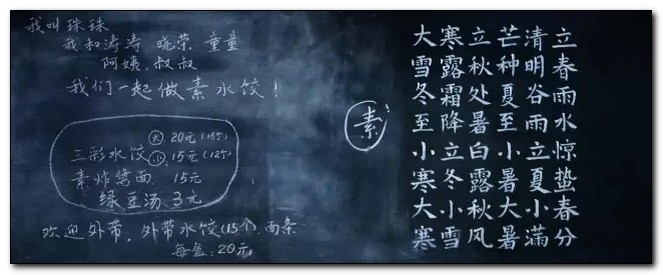 我叫珠珠
我和涛涛 晓荣 童童
阿姨、叔叔
我们一起做素水饺！
大 20元(15个)
三彩水饺 小 15元(12个)
素炸酱面 15元
绿豆汤 3元
欢迎外带，外带水饺(15个)
每盒：20元
素
立春雨水惊蛰春分
清明谷雨立夏小满
芒种夏至小暑大暑
立秋处暑白露秋风
寒露霜降立冬小雪
大雪冬至小寒大寒